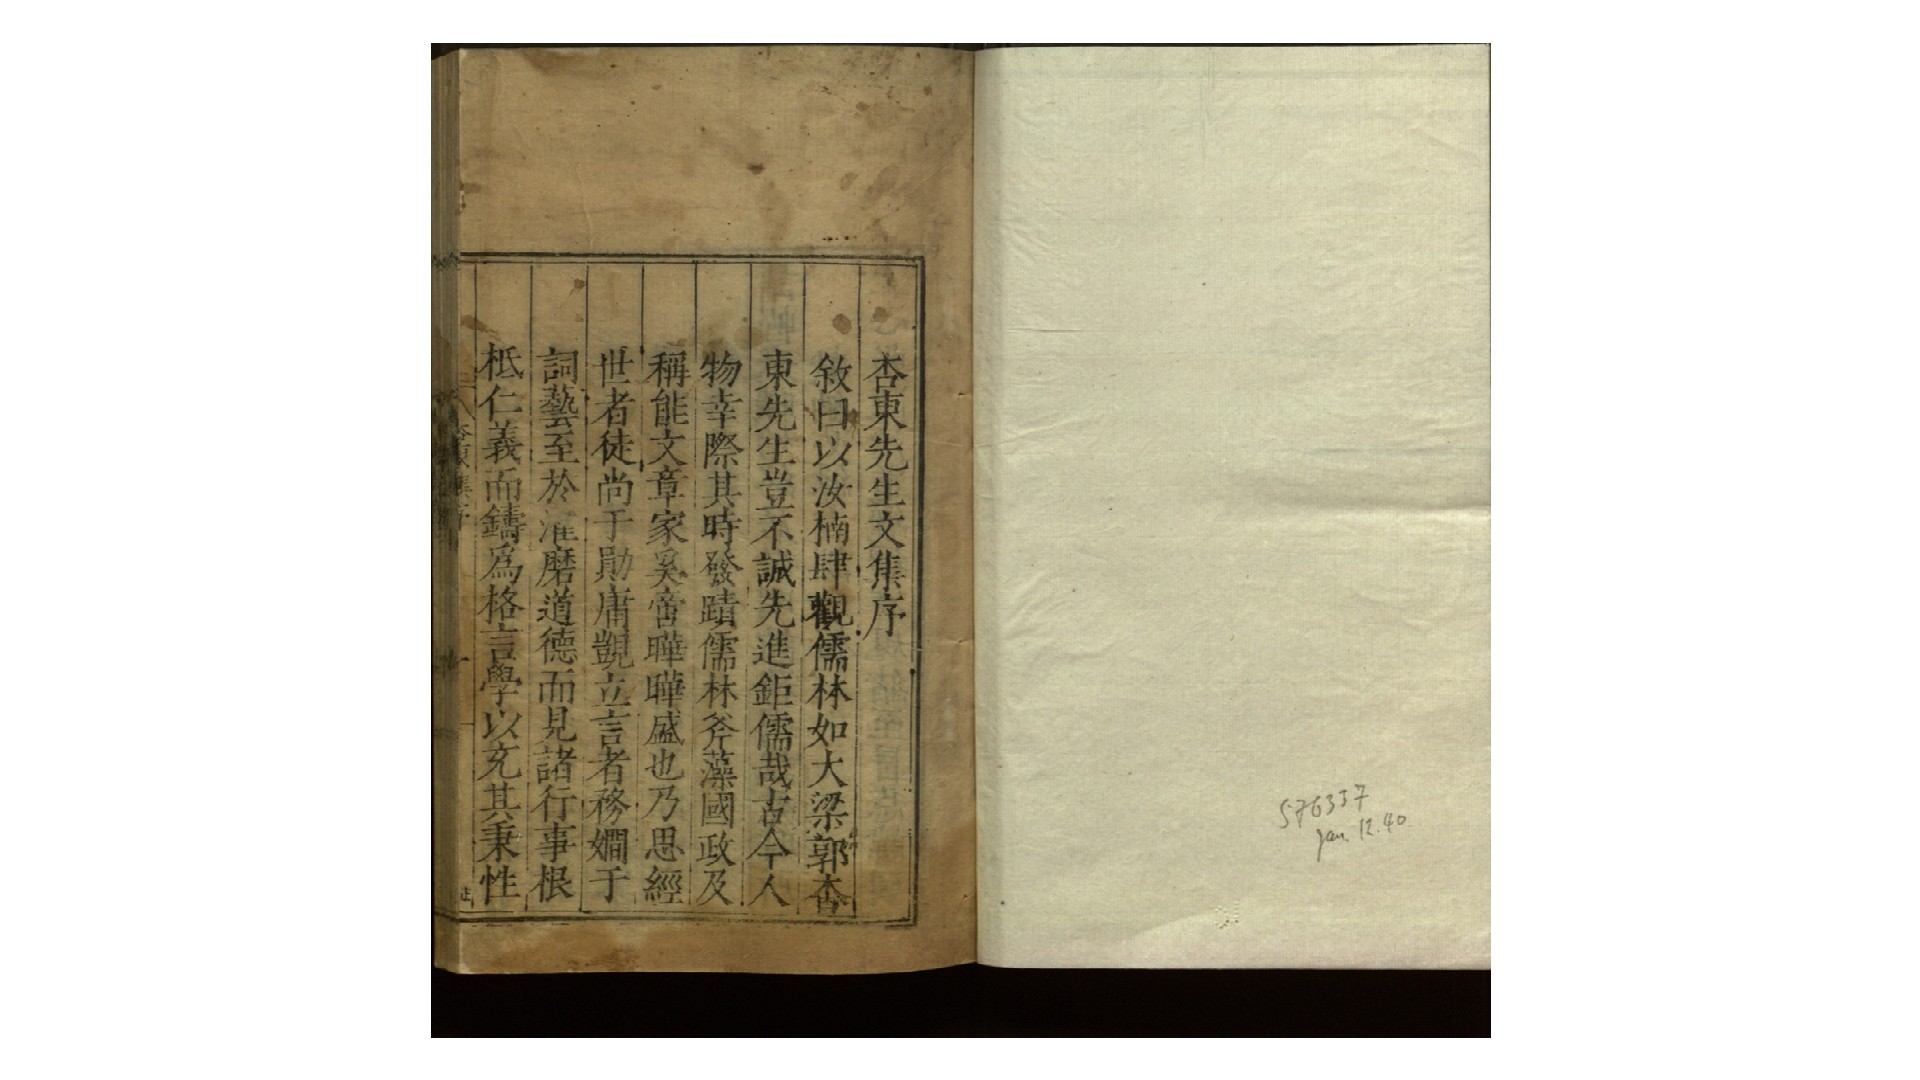 杏東先生文集序
敘曰以汝楠肆觀儒林如大梁郭杏
東先生豈不誠先進鉅儒哉古今人
物幸際其時發蹟儒林斧藻國政及
稱能文章家奚啻曄曄盛也乃思經
世者徒尚于勛庸覬立言者務嫺于
詞藝至於淮磨道德而見諸行事根
柢仁義而鑄為格言學以充其秉性
杏東集序
576357
Jan. 12. 40